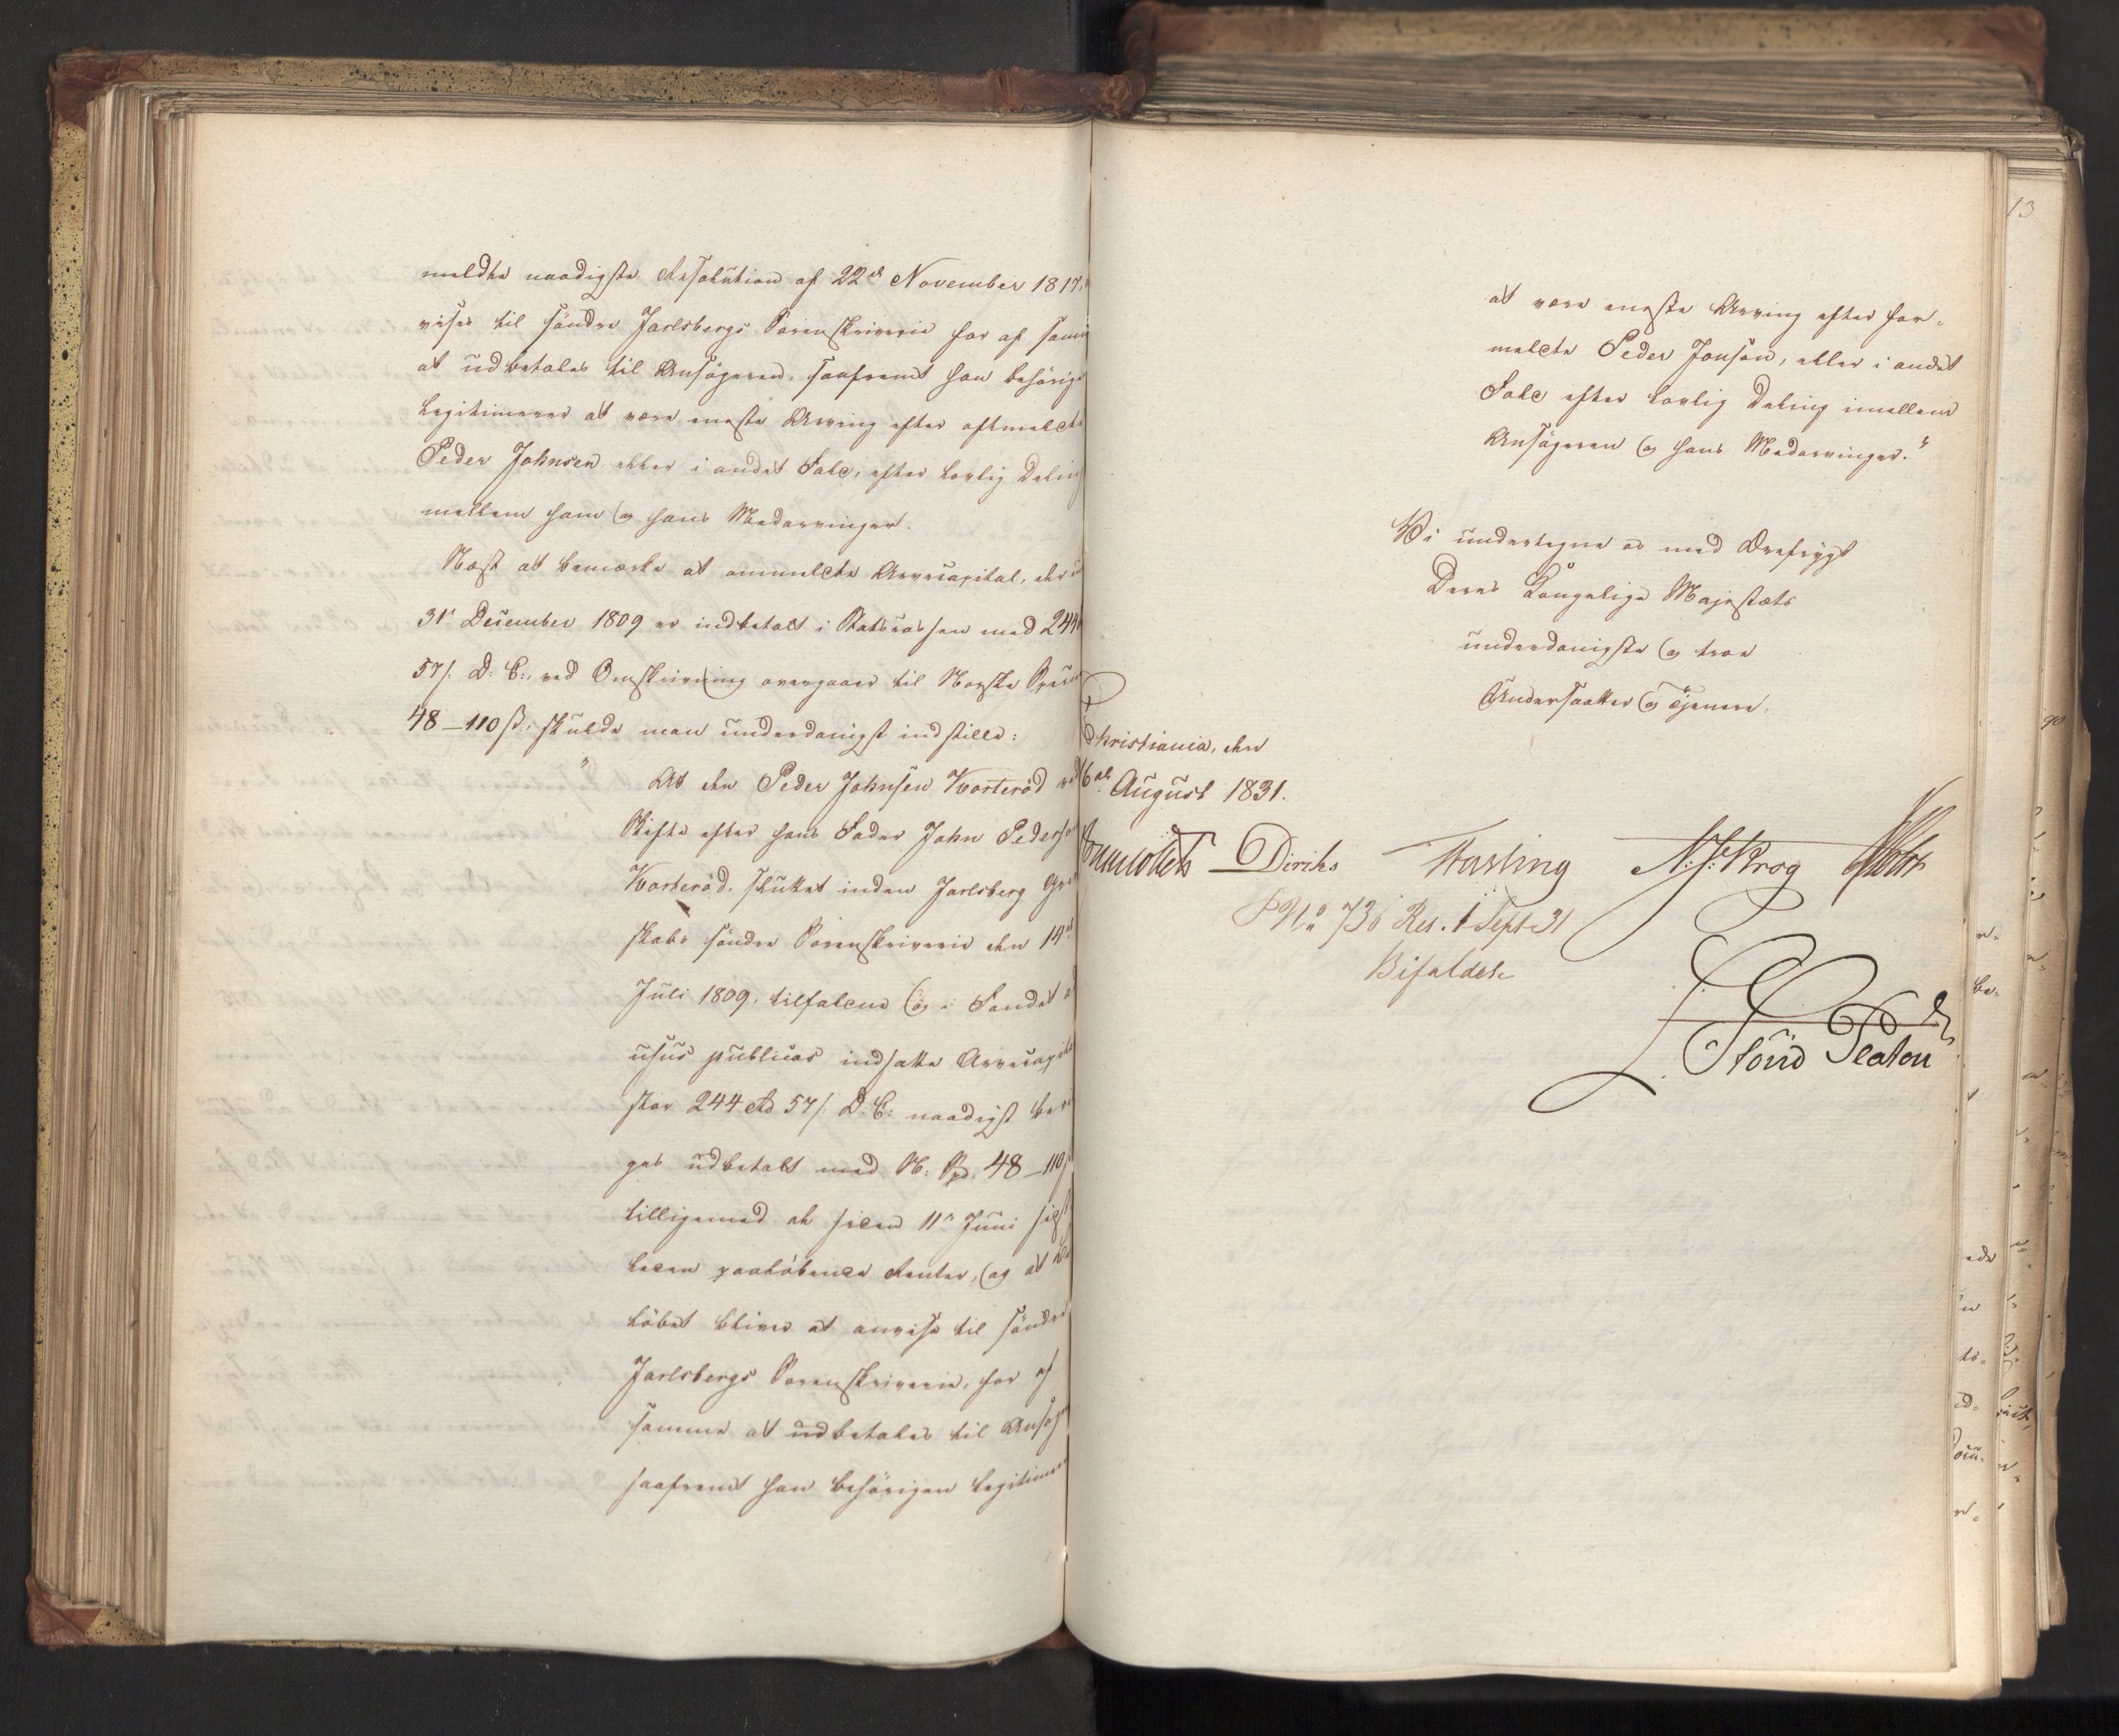 meldte naadigste Resolution af 22de November 1817,
vises til søndre Jarlsbergs Sorenskriverie for af samme
at udbetales til Ansøgeren, saafremt han behørigen
legitimerer at være eneste Arving efter oftmeldte
Peder Johnsen eller i andet Fald, efter lovlig Deling
mellem ham og hans Medarvinger.
Næst at bemærke at ommeldte Arvecapital, der
31te December 1809 er indbetalt i Statscassen med 244
57/: D: C:, ved Omskrivning overgaaer til Norske Species
48 – 110 ß: skulde man underdanigst indstille:
"At den Peder Johnsen Korterød ved
Skifte efter hans Fader John Pedersen
Korterød, sluttet inden Jarlsberg Grev
skabs søndre Sorenskriverie den 14de
Juli 1809, tilfaldne og i Fondet ad
usus publicos indsatte Arvecapital
stor 244 Rd 57/: D: C: naadigst be
ges udbetalt med N: Spd. 48 – 110/
tilligemed de siden 11te Juni sidst
leden paaløbende Renter, og at Be
løbet bliver at anvise til søndre
Jarlsbergs Sorenskriverie, for af
samme at udbetales til Ansøge
saafremt han behørigen legitimerer
at være eneste Arving efter for-
meldte Peder Jonsen, eller i andet
Fald efter lovlig Deling imellem
Ansøgeren og hans Medarvinger."
Vi undertegne os med Ærefrygt
Deres Kongelige Majestæts
underdanigste og troe
Undersaatter og Tjenere.
Christiania, den
16de August 1831.
Diriks Fasting N: J: Krog
PNo 736 Res. 1 Sept 31
Bifaldes
Platou
13